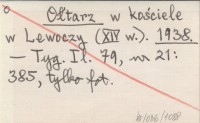 Ołtarz w kościele
w Lewoczy (XIV w.). 1938.
— Tyg. Il. 79, nr 21:
385, tylko fot.